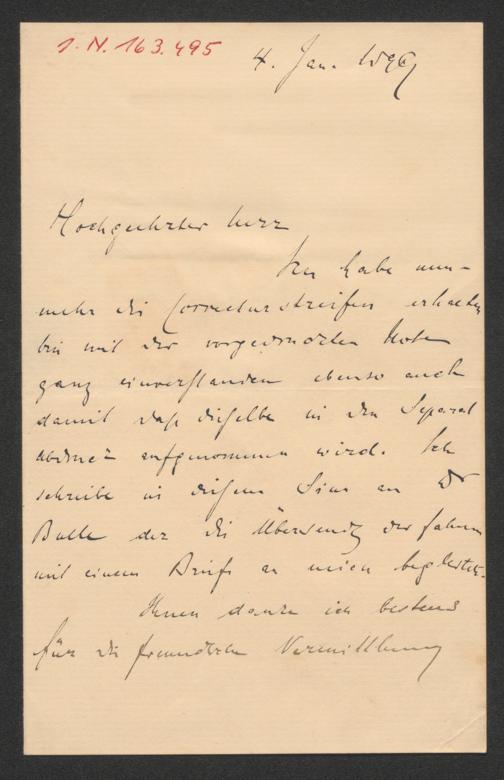 I. N. 163.495
4. Jan. 1896
Hochgeehrter Herr
Ich habe nun-
mehr die Correcturstreifen erhalten
bin mit der vorgedruckten Note
ganz einverstanden ebenso auch
damit daß dieselbe in den Separat
abdruck aufgenommen wird. Ich
schreibe in diesem Sinn an Dr
Bulle der die Übersendg der Fahnen
mit einem Briefe an mich begleitete.
Ihnen danke ich bestens
für die freundliche Vermittlung